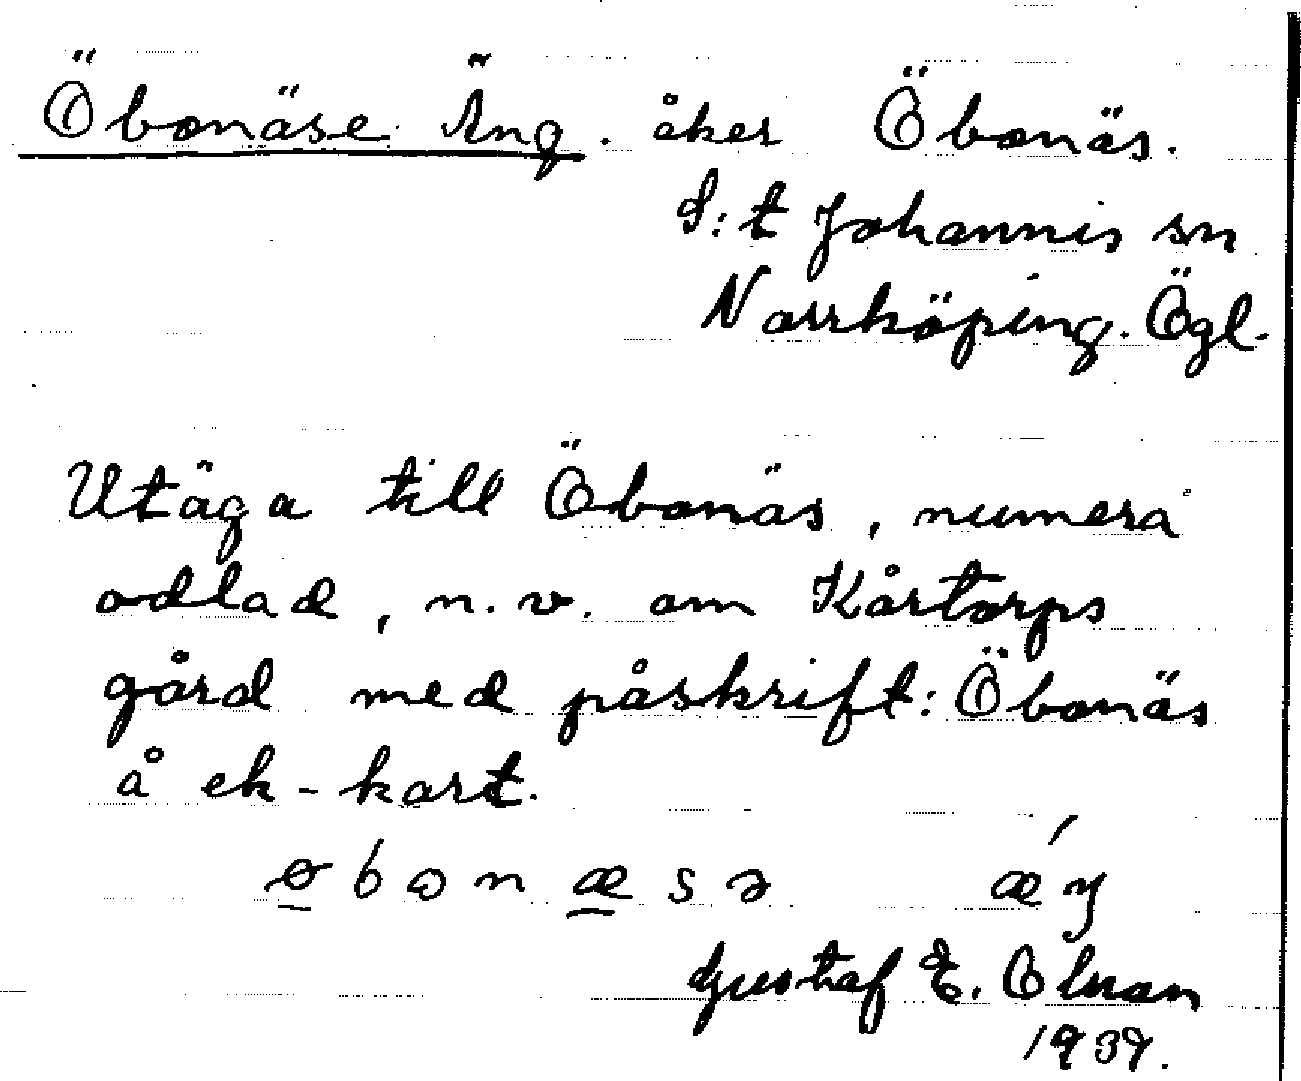 Öbonäse Äng. åker Öbonäs.
S:t Johannis sn
Norrköping. Ögl.
Utäga till Öbonäs, numera
odlad, n.v. om Kårtorps
gård med påskrift: Öbonäs
å ek-kart.
øbɷnæsə æŋ
Gustaf E. Olsson
1939.